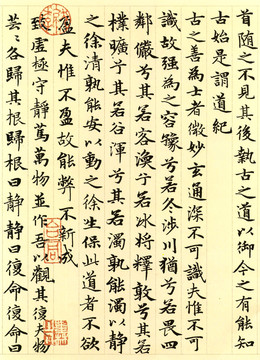 首隨之不見其後執古之道以御今之有能知
古始是謂道紀
古之善為士者微妙玄通深不可識夫惟不可
識故强為之容豫兮若冬涉川猶兮若畏四
鄰儼兮其若客渙兮若冰將釋敦兮其若
樸曠兮其若谷渾兮其若濁孰能濁以静
之徐清孰能安以動之徐生保此道者不欲
盈夫惟不盈故能弊不新成
致虛極守静篤萬物並作吾以觀其復夫物
芸芸各歸其根歸根曰静静曰復命復命曰